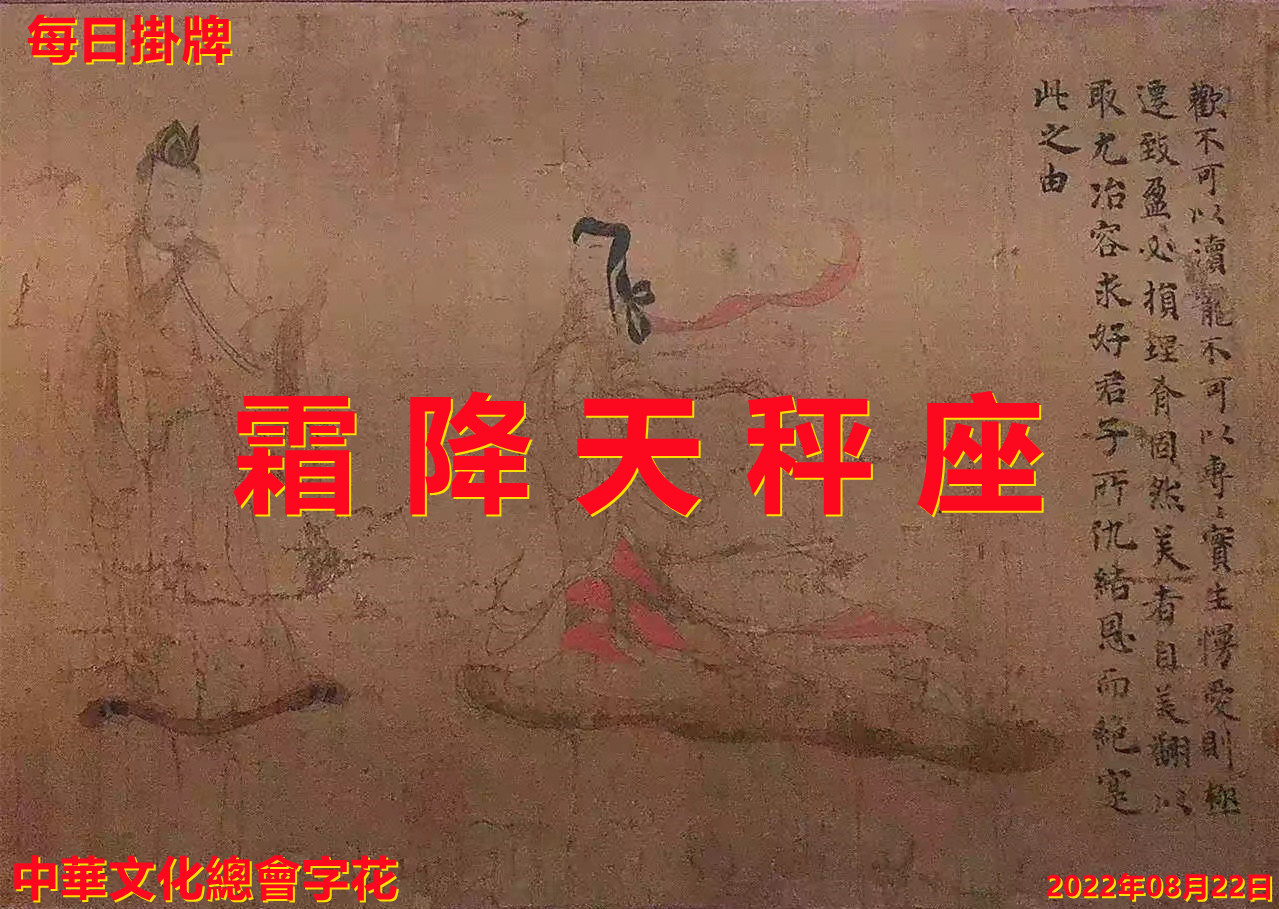 每日掛牌
歡不可以瀆寵不可以專專實生慢愛則極
遷致盈必損理有固然美者自美翩以
取尤冶容求好君子所仇結恩而絕寔
此之由
霜降天秤座
中華文化總會字花
2022年08月22日